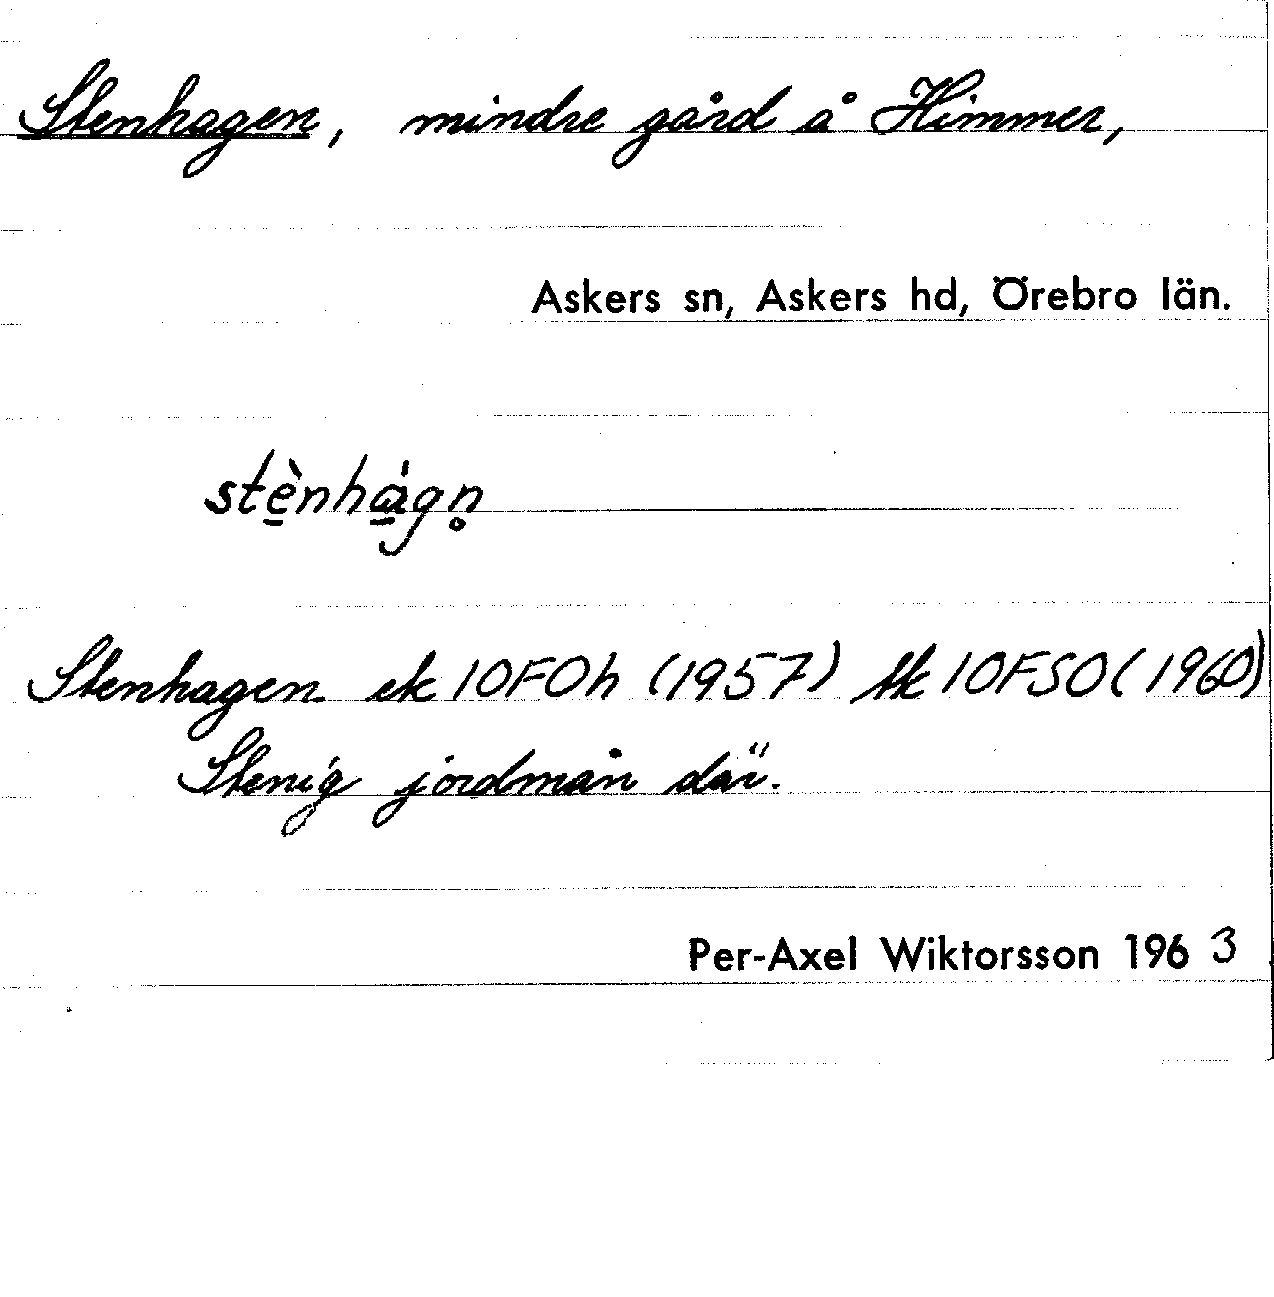 Stenhagen, mindre gård å Himmer,
Askers sn, Askers hd, Örebro län.
stè̱nhá̱gn̥
Stenhagen ek 10F0h (1957) tk 10FSO (1960)
Stenig jordmån där.
Per-Axel Wiktorsson 1963